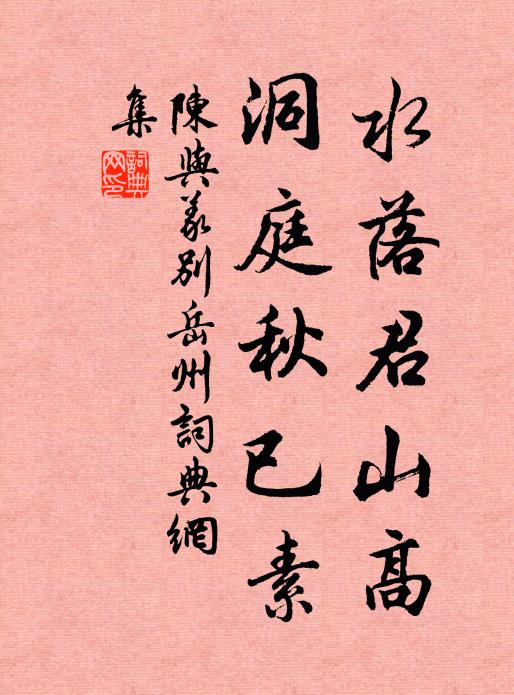 水落君山高
洞庭秋已素
陳與義別岳州詞典網
集
詞典
网印